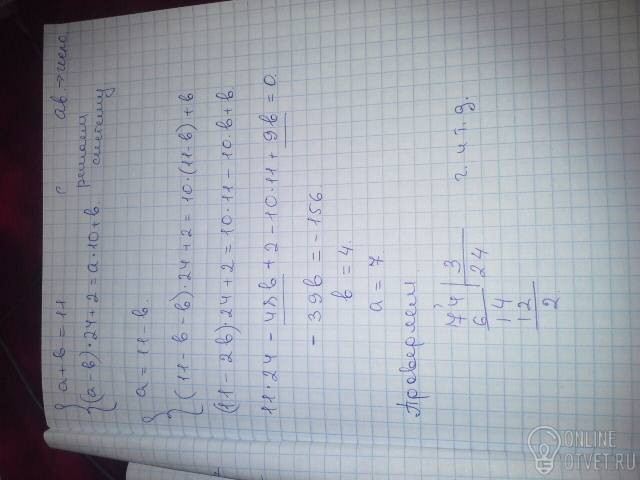 ab → число
{ a + b = 11
{ (a-b)·24+2 = a·10+b. решаем систему
a = 11 - b.
{ (11-b-b)·24+2=10·(11-b)+b
(11-2b)·24+2=10·11-10·b+b.
11·24-48b+2-10·11+9b=0.
-39b=-156
b=4.
a=7.
Проверяем
74 | 3
6 24
14
12
2
ч. и т. д.
ONLINE
OTVET.RU